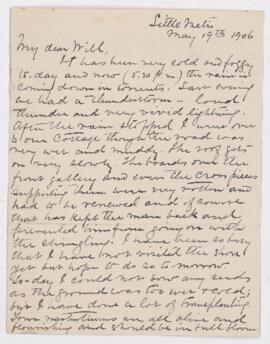 Little Metis
May 19th 1906
My dear Will,
It has been very cold and foggy
to-day and now (5.30 P.M.) the rain is
coming down in torrents. Last evening
we had a thunderstorm – loud
thunder and very vivid lightning.
After the rain stopped I went over
to our Cottage though the road was
very wet and muddy. The roof gets
on very slowly. The boards over the
front gallery and even the cross pieces
supporting them were very rotten and
had to be renewed and of course
that has kept the man back and
prevented him from going on with
the shingling. I have been so busy
that I have not visited the shore
yet but hope to do so to-morrow.
To-day I could not sow any seeds
as the ground was too wet & cold;
but I have done a lot of transplanting.
Your nasturtiums are all alive and
flourishing and should be in full bloom